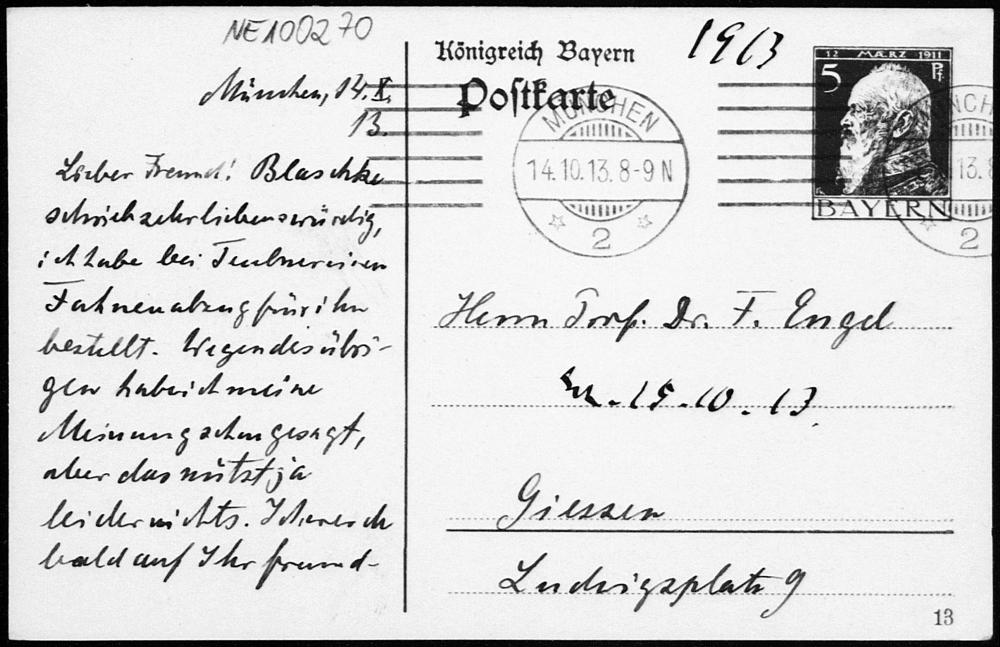 NE100270
München, 14. X.
13.
Lieber Freund! Blaschke
schrieb sehr liebenswürdig,
ich habe bei Teubner einen
Fahnenabzug für ihn
bestellt. Wegen des übri-
gen habe ich meine
Meinung schon gesagt,
aber das nützt ja
leider nichts. Ich
bald auf Ihr freund-
Königreich Bayern
Postkarte
1913
12 MÆRZ 1911
5 Pf.
BAYERN
MÜNCHEN
14.10.13.8-9N
2
NCHEN
13.8
2
Herrn Prof. Dr. F. Engel
15.10.13.
Giessen
Ludwigsplatz 9
13